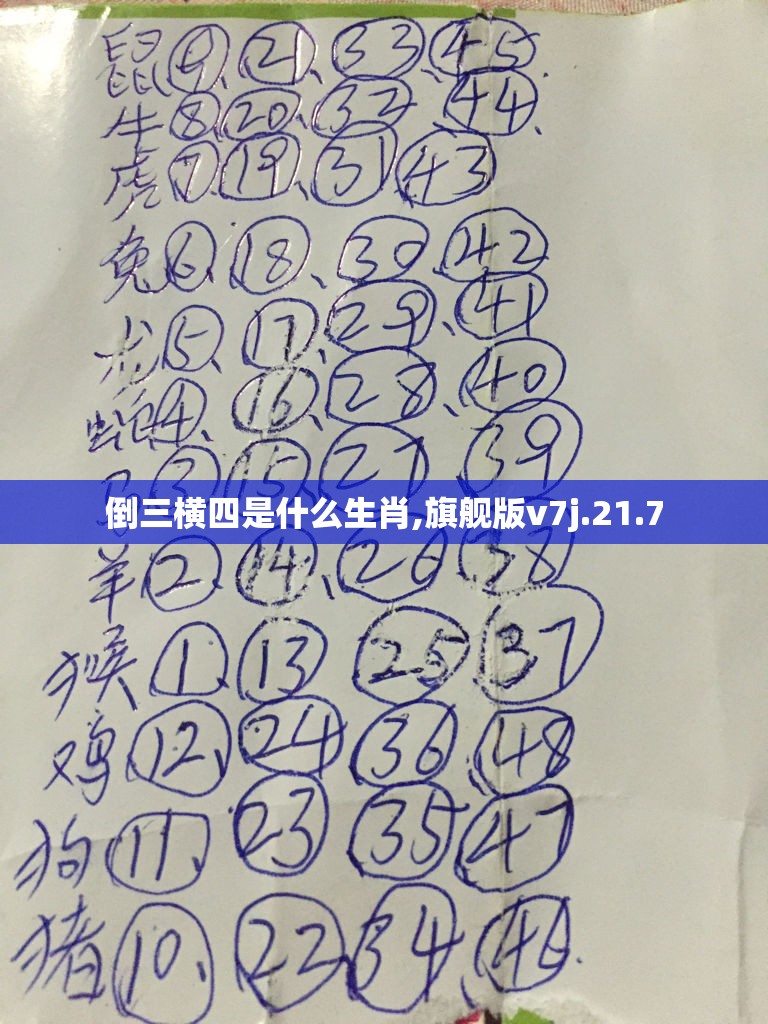 鼠⑨、㉑、㉝、㊺.
牛⑧、⑳、㉜ ㊹、
虎⑦、⑲、㉛、㊸
兔⑥、⑱、㉚、㊷
龙⑤、⑰、㉙、㊶
蛇④、⑯、㉘、㊵
马③、⑮、㉗、㊴
倒三横四是什么生肖,旗舰版v7j.21.7
羊②、⑭、㉖、㊳
猴①、⑬ ㉕、㊲
鸡⑫、㉔、㊱、㊽
狗⑪、㉓、㉟、㊼
猪⑩、㉒、㉞、㊻.